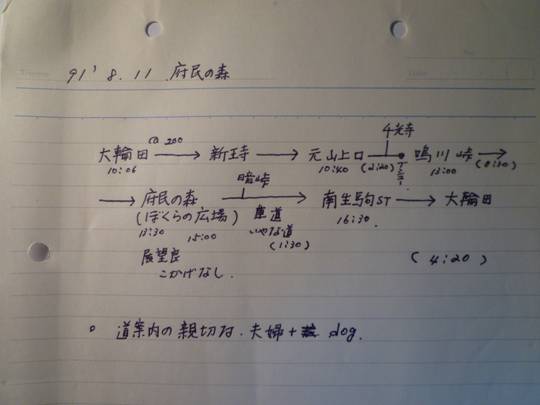 91' 8.11 府民の森
千光寺
@200
大輪田 → 新王寺 → 元山上口 → 鳴川峠 →
10:06 10:40 (2:20) 13:00 (0:30)
暗峠
→ 府民の森 → 南生駒ST → 大輪田
(ぼくらの広場) 車道
13:30 15:00 いやな道 16:30
(1:30)
展望良 (4:20)
こかげなし.
○ 道案内の親切な.夫婦+ dog.